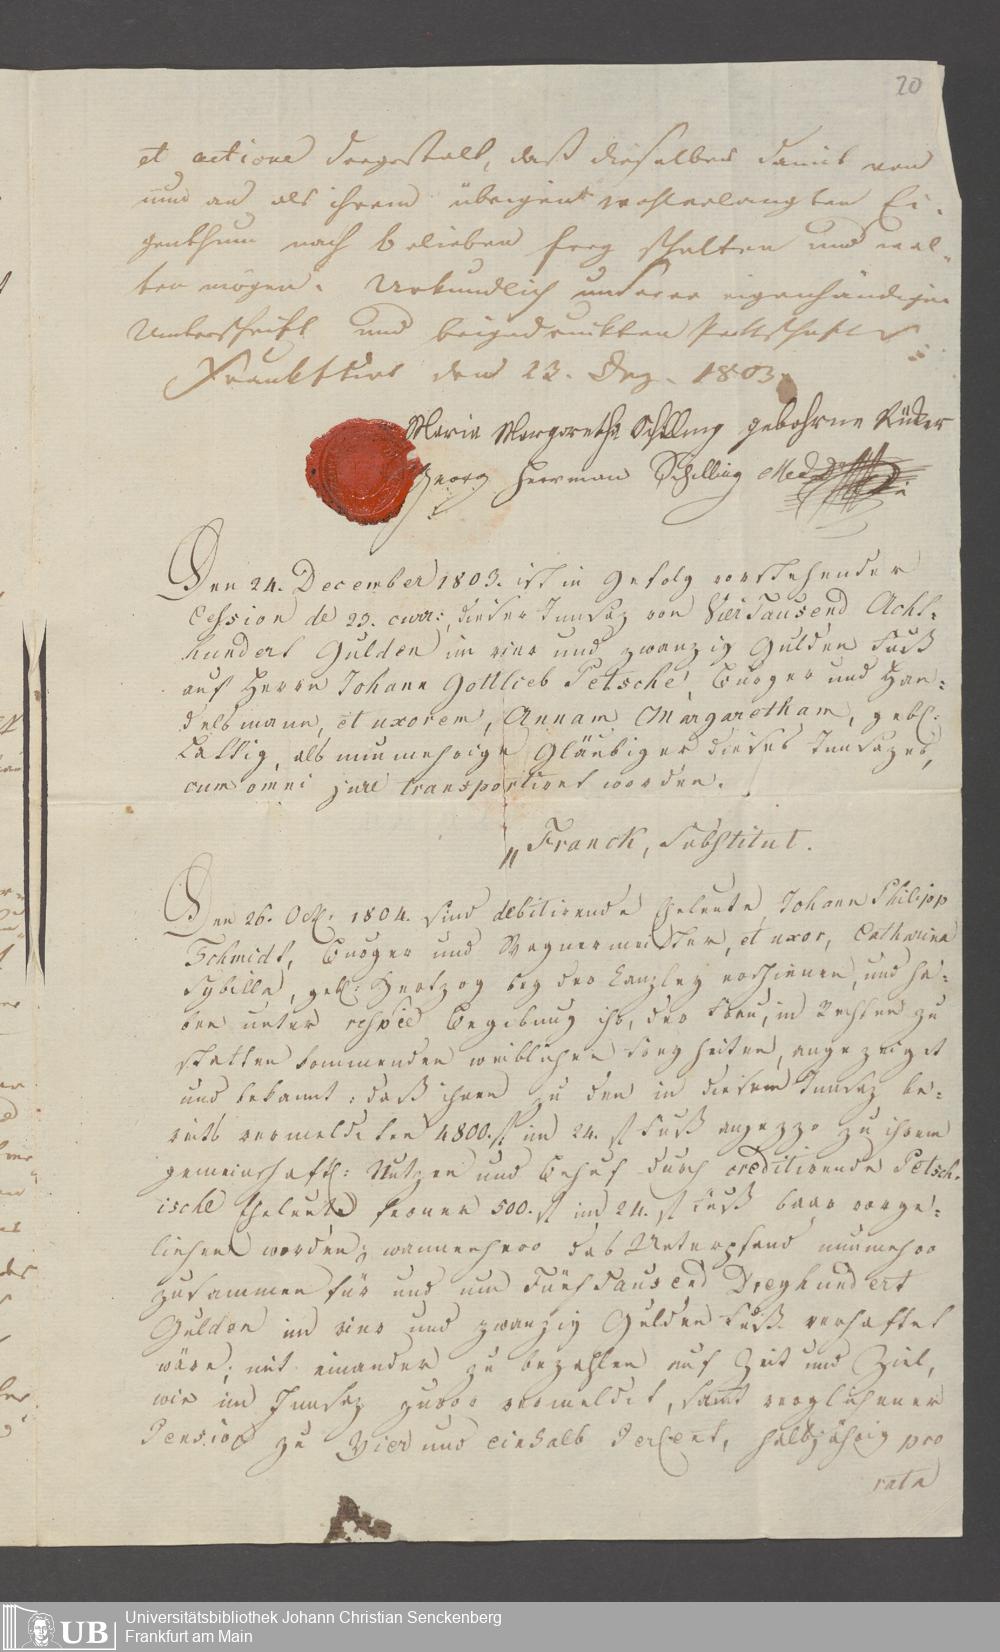 20
et actione dergestalt, daß dieselben damit von
nun an als ihrem übrigens wohlerlangten Ei-
genthum nach belieben frey schalten und wal-
ten mögen. Urkundlich unserer eigenhändigen
Unterschrift und beigedruckten Pettschaft
Frankfurt den 23. Dez. 1803.
Maria Margaretha Schilling gebohrne Rücker
Georg Herman Schilling
Den 24. December 1803. ist in Gefolg vorstehender
Cession de 23. curr:, dieser Innsaz von Vier Tausend Acht-
hundert Gulden im vier und zwanzig Gulden Fuß
auf Herrn Johann Gottlieb Petsche, Burger und Han-
delsmann, et uxorem, Annam Margaretham, gebl:
als nunmehrige Gläubiger dieses Innsazes,
cum omni jure transportiret worden.
Franck, Substitut.
Den 26. Oct. 1804. sind debitirende Eheleute, Johann Philipp
Schmidt, Burger und Wagnermeister, et uxor, Catharina
Sybilla, gebl: Hertzog bey der Kanzley erschienen, und ha-
ben unter respve Begebung ihr, der Frau, in Rechten zu
statten kommenden weiblichen Freyheiten, angezeiget
und bekannt: daß ihnen zu den in diesem Innsaz be-
reits vermeldeten 4800. fl im 24. fl Fuß annoch zu ihrem
gemeinschaftl: Nutzen und Behuf durch creditirende Petsch-
ische Eheleute ferner 500. fl im 24. fl Fuß baar vorge-
liehen worden; wannenhero das Unterpfand nunmehro
zusammen für und um Fünf Tausend Dreyhundert
Gulden im vier und zwanzig Gulden Fuß verhaftet
wäre; mit einander zu bezahlen auf Zeit und Ziel,
wie im Innsaz zuvor vermeldet, samt verglichener
Pension zu Vier und einhalb Percent, halbjährig pro
rata
UB
Universitätsbibliothek Johann Christian Senckenberg
Frankfurt am Main